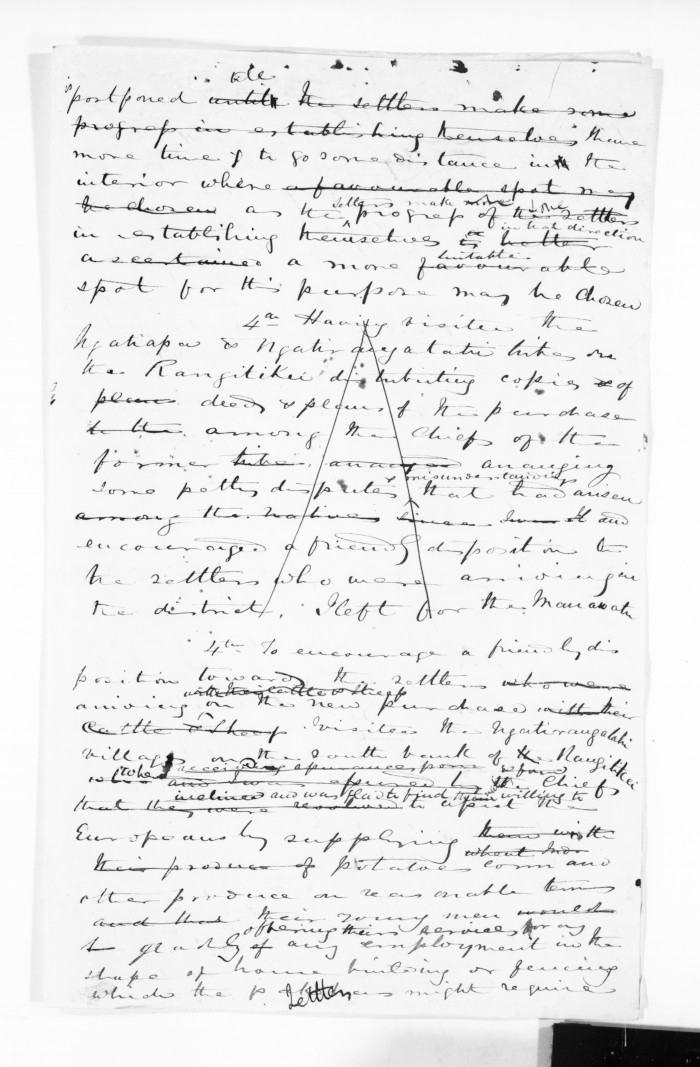 postponed until the settlers make some
progress in establishing themselves have
more time & to go some distance in the
interior where a favourable spot may
settlers make more some
be chosen as the progress of the settlers
in that direction
in establishing themselves is better
suitable
ascertained a more favourable
spot for this purpose may be chosen
4th Having visited the
Ngatiapa & Ngatirangatahi tribes on
the Rangitikei distributing copies of
plans deeds & plans of the purchase
to the among the Chiefs of the
former tribe, arranged arranging
& misunderstandings
some petty disputes that had arisen
among the natives since and
encouraged a friendly disposition to
the settlers who were arriving in
the district, I left for the Manawatu
4th To encourage a friendly dis
position towards the settlers who were
with their cattle & sheep
arriving on the new purchase with their
Cattle & Sheep visited the Ngatirangatahi
village on the South bank of the Rangitikei
receiving
and was assured by the Chiefs
inclined and was glad to find them willing to
that they were resolved to assist the
Europeans by supplying them with
without
their produce of potatoes corn and
other produce on reasonable terms
and that their young men would
offering their services for any
gladly of any employment in the
shape of house building or fencing
Settlers
which the might require